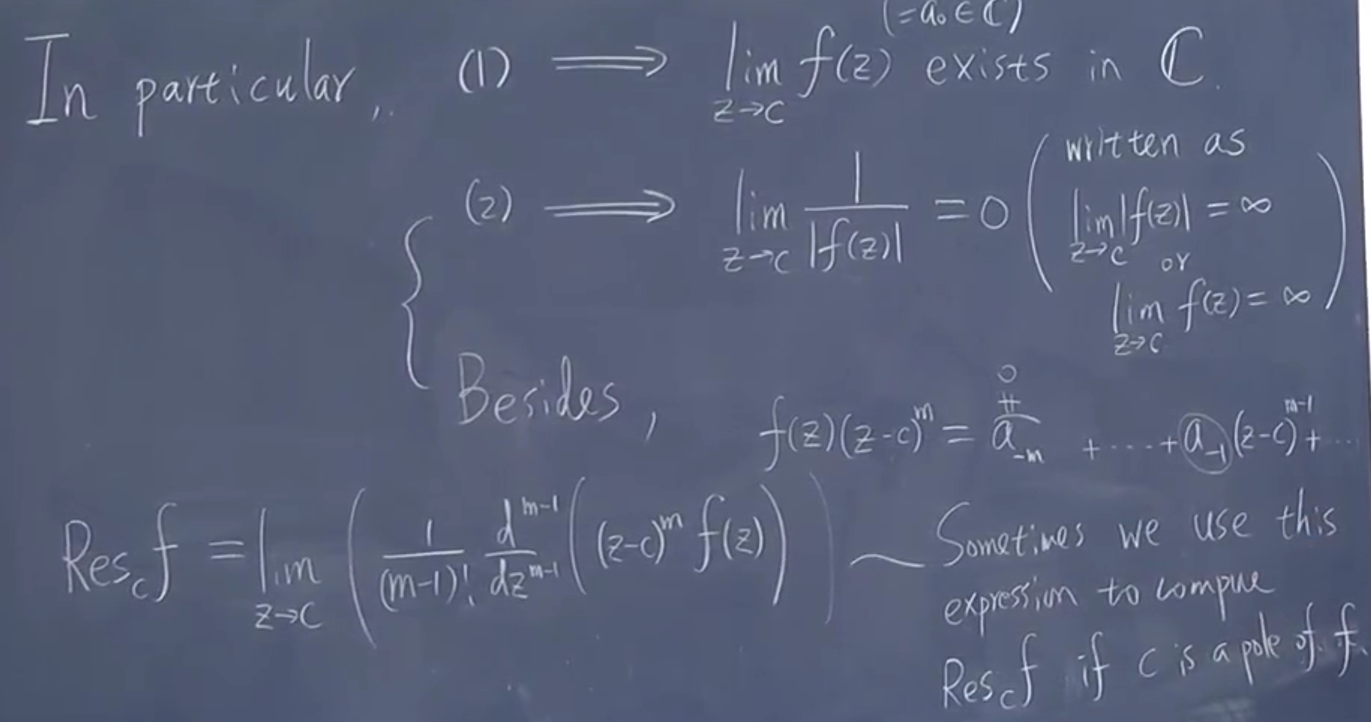 (=a₀ ∈ ℂ)
In particular, (1) ⟹ lim_{z→c} f(z) exists in ℂ.
(2) ⟹ lim_{z→c} 1/|f(z)| = 0 ( written as
lim_{z→c} |f(z)| = ∞
or
lim_{z→c} f(z) = ∞ )
Besides, f(z)(z-c)^m = a_{-m} (≠ 0) + ⋯ + a_{-1}(z-c)^{m-1} + ⋯
Res_c f = lim_{z→c} ( 1/(m-1)! d^{m-1}/dz^{m-1} ( (z-c)^m f(z) ) ) ~ Sometimes we use this
expression to compute
Res_c f if c is a pole of f.